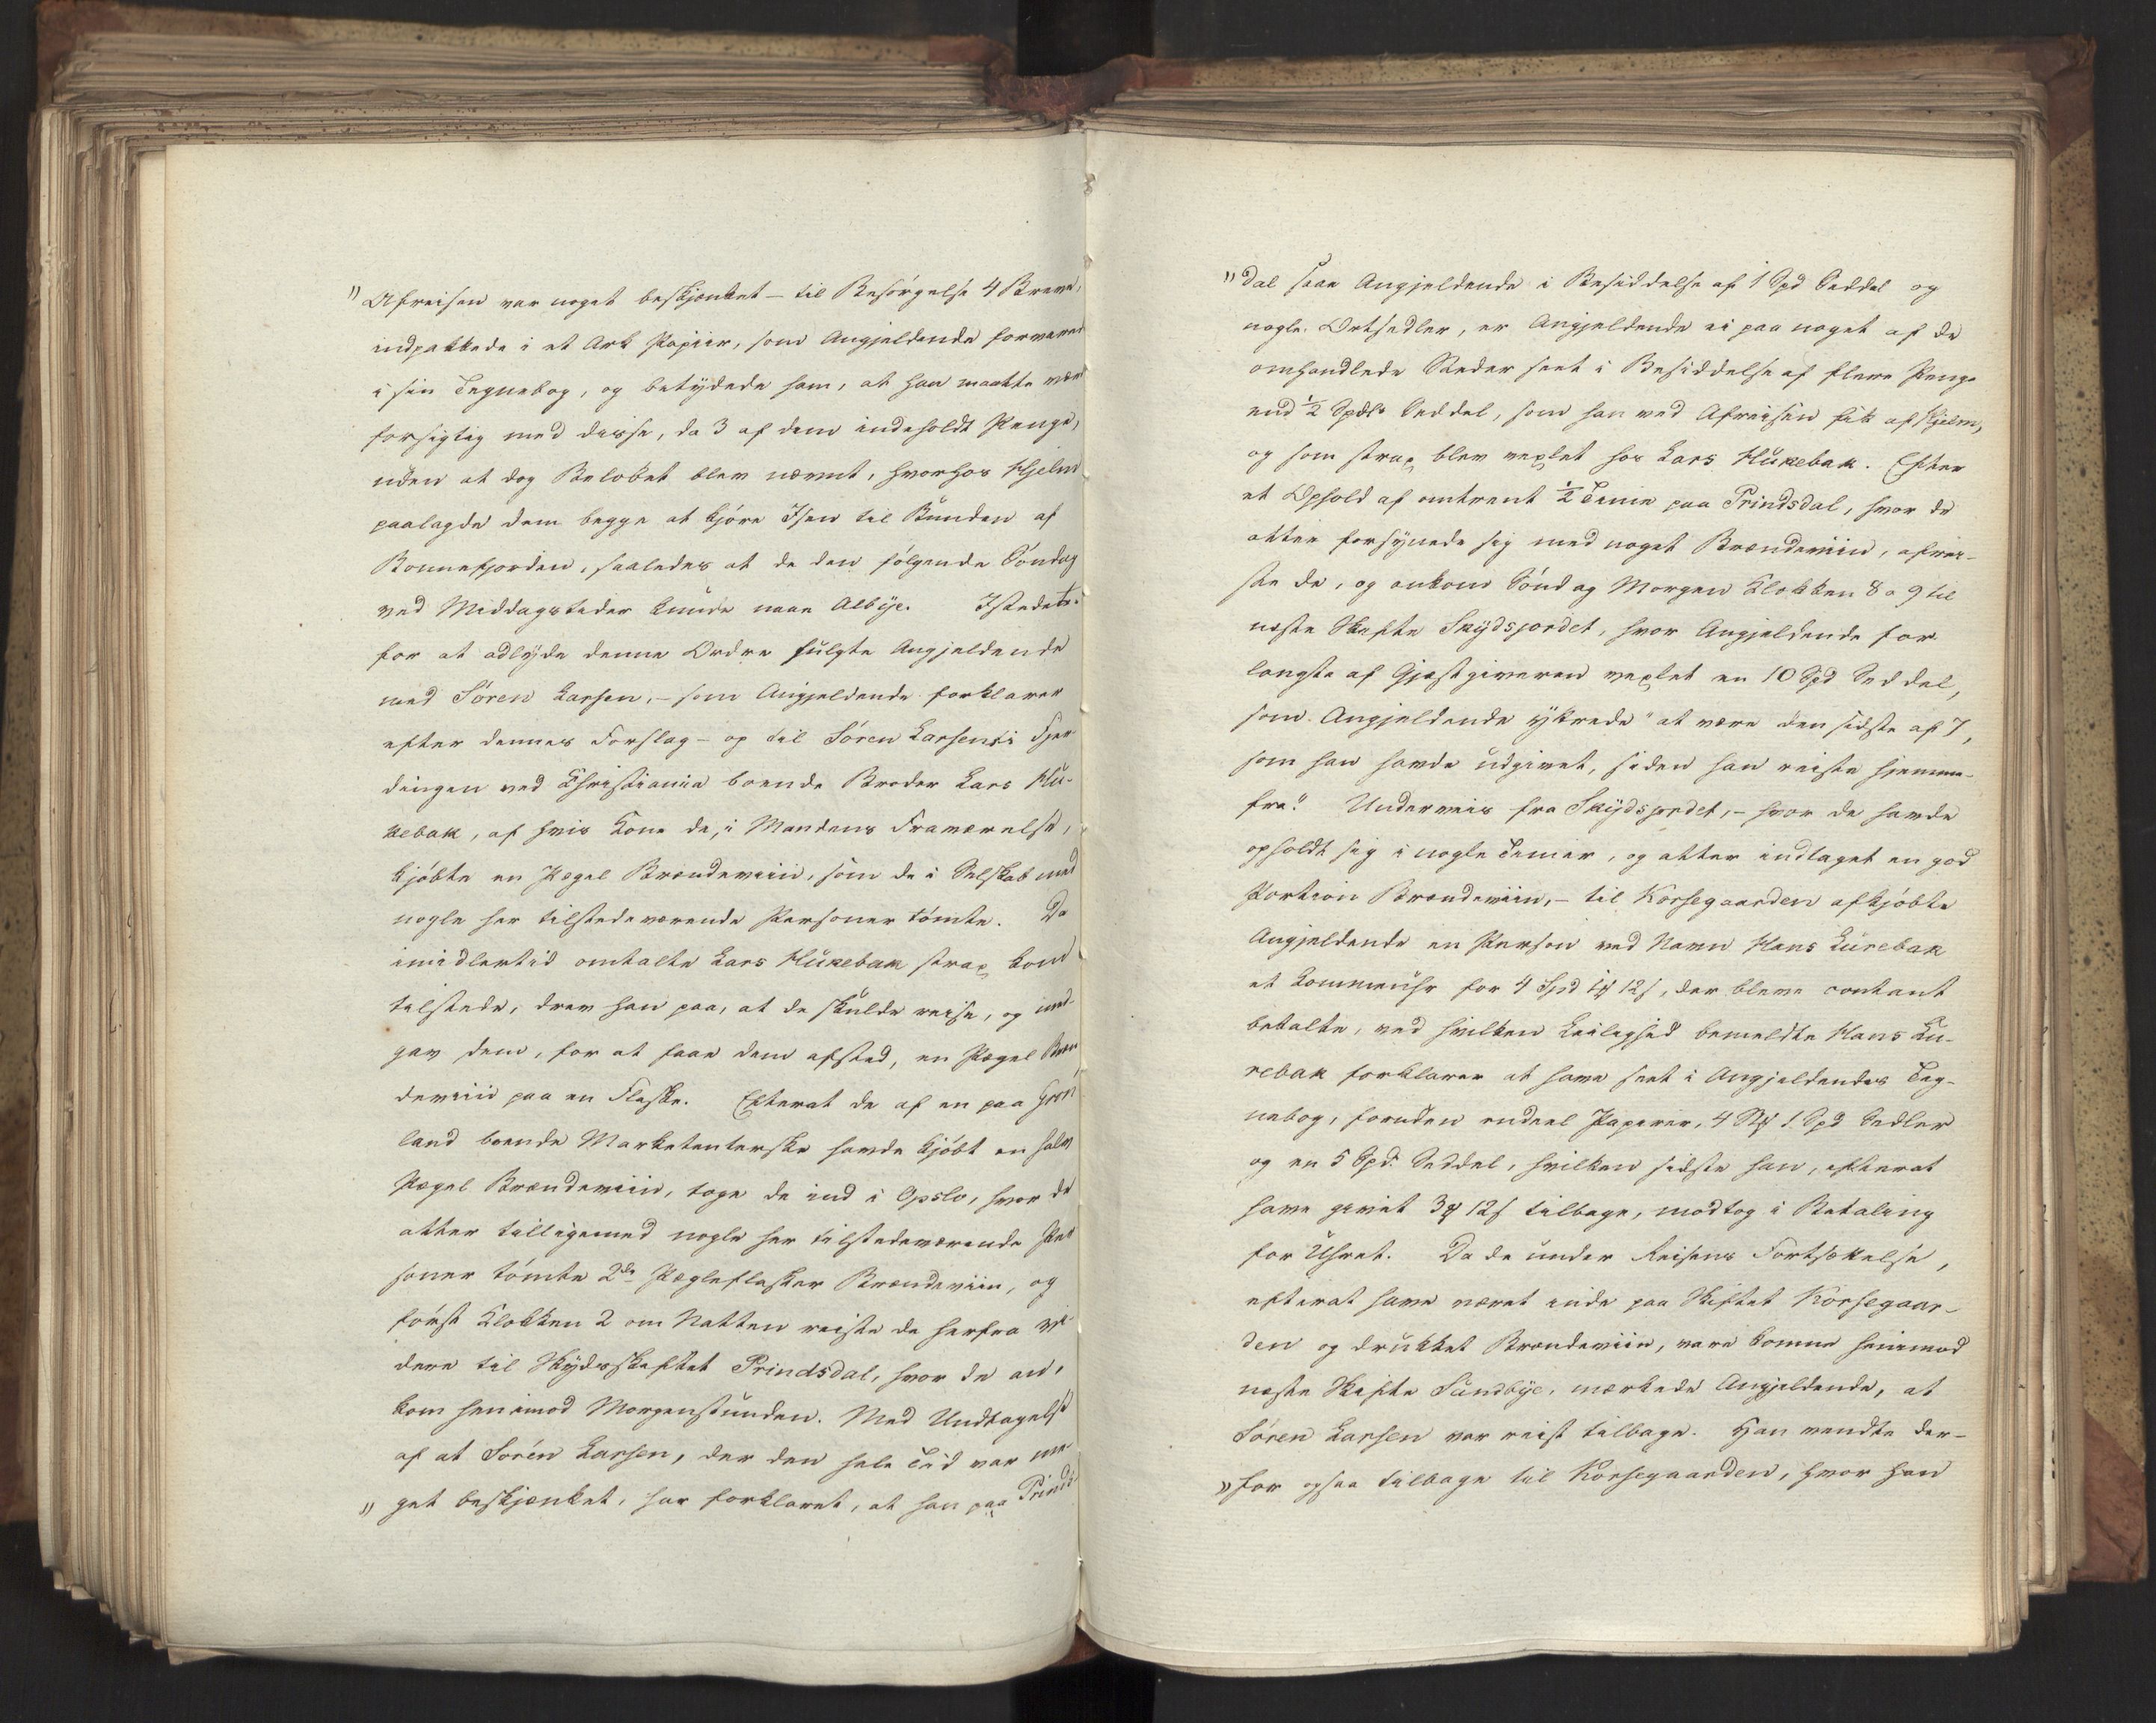 "Afreisen var noget beskjænket – til Besørgelse 4 Breve,
indpakkede i et Ark Papiir, som Angjeldende forvarede
i sin Tegnebog, og betydede ham, at han maatte være
forsigtig med disse, da 3 af dem indeholdt Penge,
uden at dog Beløbet blev nævnt, hvorhos Hjelm
paalagde dem begge at kjøre Isen til Bunden af
Bonnefjorden, saaledes at de den følgende Søndag
ved Middagstider kunde naae Albye. Istedet-
for at adlyde denne Ordre fulgte Angjeldende
med Søren Larsen, – som Angjeldende forklarer
efter dennes Forslag – op til Søren Larsens i Fjer-
dingen ved Christiania boende Broder Lars Hu-
kebak, af hvis Kone de, i Mandens Fraværelse,
kjøbte en Pægel Brændeviin, som de i Selskab med
nogle her tilstedeværende Personer tømte. Da
imidlertid omtalte Lars Hukebak strax kom
tilstede, drev han paa, at de skulde reise, og med-
gav dem, for at faae dem afsted, en Pægel Bræn
deviin paa en Flaske. Efterat de af en paa Grøn
land boende Marketenterske havde kjøbt en halv
Pægel Brændeviin, toge de ind i Opslo, hvor de
atter tilligemed nogle her tilstedeværende Per
soner tømte 2de Pægleflasker Brændeviin, og
først Klokken 2 om Natten reiste de herfra vi-
dere til Skydsskiftet Prindsdal, hvor de an-
kom henimod Morgenstunden. Med Undtagelse
af at Søren Larsen, der den hele Tid var me-
" get beskjænket, har forklaret, at han paa Prinds-
"dal saae Angjeldende i Besiddelse af 1 Spd Seddel og
nogle Ortsedler, er Angjeldende ei paa noget af de
omhandlede Steder seet i Besiddelse af flere Penge
end ½ Spdlr Seddel, som han ved Afreisen fik af Hjelm,
og som strax blev vexlet hos Lars Hukebak. Efter
et Ophold af omtrent ½ Time paa Prindsdal, hvor de
atter forsynede sig med noget Brændeviin, afrei-
ste de, og ankom Søndag Morgen Klokken 8 a 9 til
næste Skifte Skydsjordet, hvor Angjeldende for-
langte af Gjæstgiveren vexlet en 10 Spd Seddel,
som Angjeldende yttrede "at være den sidste af 7,
som han havde udgivet, siden han reiste hjemme-
fra". Underveis fra Skydsjordet, – hvor de havde
opholdt sig i nogle Timer, og atter indtaget en god
Portion Brændeviin, – til Korsegaarden afkjøbte
Angjeldende en Person ved Navn Hans Lurebak
et Lommeuhr for 4 Spd 1 ₰ 12 s, der bleve contant
betalte, ved hvilken Leilighed bemeldte Hans Lu-
rebak forklarer at have seet i Angjeldendes Teg-
nebog, foruden endeel Papirer, 4 1 Spd Sedler
og en 5 Spd. Seddel, hvilken sidste han, efterat
have givet 3 ₰ 12 s tilbage, modtog i Betaling
for Uhret. Da de under Reisens Fortsættelse,
efterat have været inde paa Skiftet Korsegaar-
den og drukket Brændeviin, vare komne henimod
næste Skifte Sundbye, mærkede Angjeldende, at
Søren Larsen var reist tilbage. Han vendte der-
"for ogsaa tilbage til Korsegaarden, hvor han